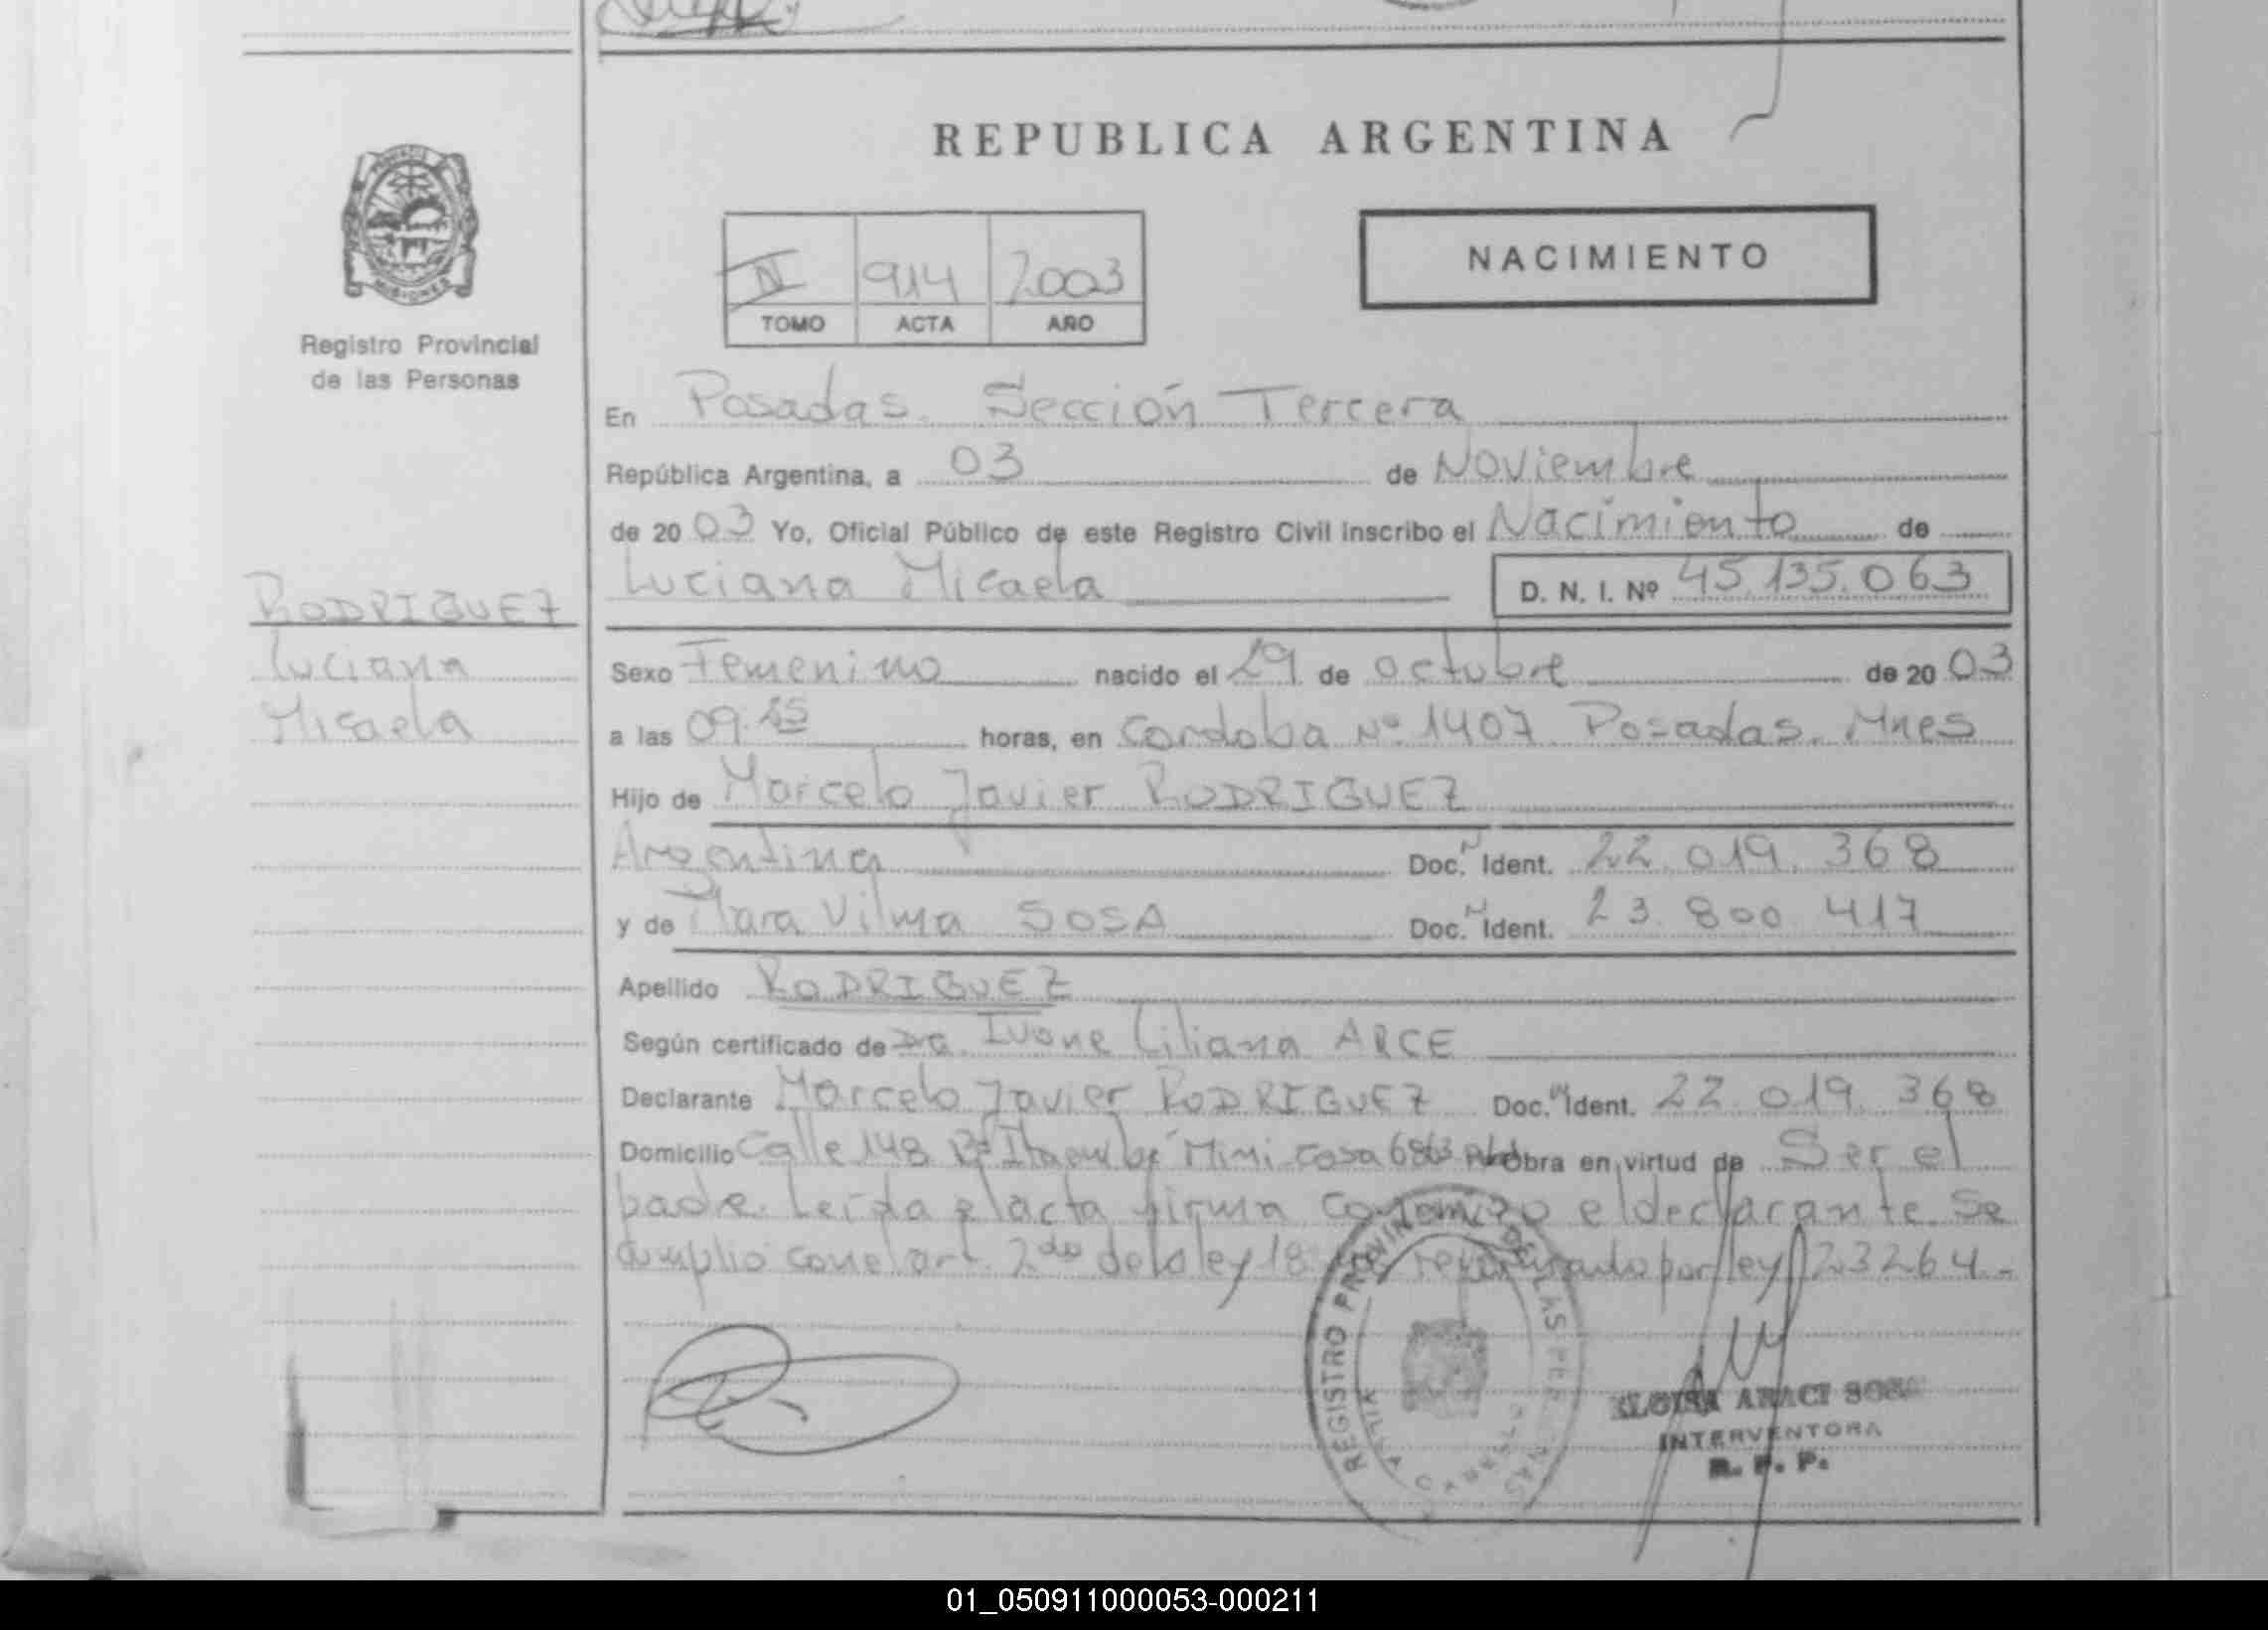 REPUBLICA ARGENTINA
NACIMIENTO
914 2003
TOMO ACTA AÑO
MISIONES
Registro Provincial
de las Personas
En Posadas. Sección Tercera
República Argentina, a 03 de Noviembre
de 20 03 Yo, Oficial Público de este Registro Civil inscribo el Nacimiento de
Luciana Micaela D. N. I. Nº 45.135.063
RODRIGUEZ
Luciana
Micaela
Sexo Femenino nacido el 29 de octubre de 20 03
a las 09.25 horas, en Cordoba Nº 1407 Posadas. Mnes
Hijo de Marcelo Javier RODRIGUEZ
Argentina Doc. Ident. 22.019.368
y de Mara Vilma SOSA Doc. Ident. 23.800.417
Apellido RODRIGUEZ
Según certificado de Dra. Ivone Liliana ARCE
Declarante Marcelo Javier RODRIGUEZ Doc. Ident. 22.019.368
Domicilio Calle 148 Bº Itaembé Mini casa 6863 Obra en virtud de Ser el
padre. Leída el acta firma conmigo el declarante. Se
cumplió con el art. 2do de la ley 18 por ley 23264.-
REGISTRO PROVINCIAL DE LAS PERSONAS
ELOISA ARACI SOSA
INTERVENTORA
R. P. P.
01_050911000053-000211